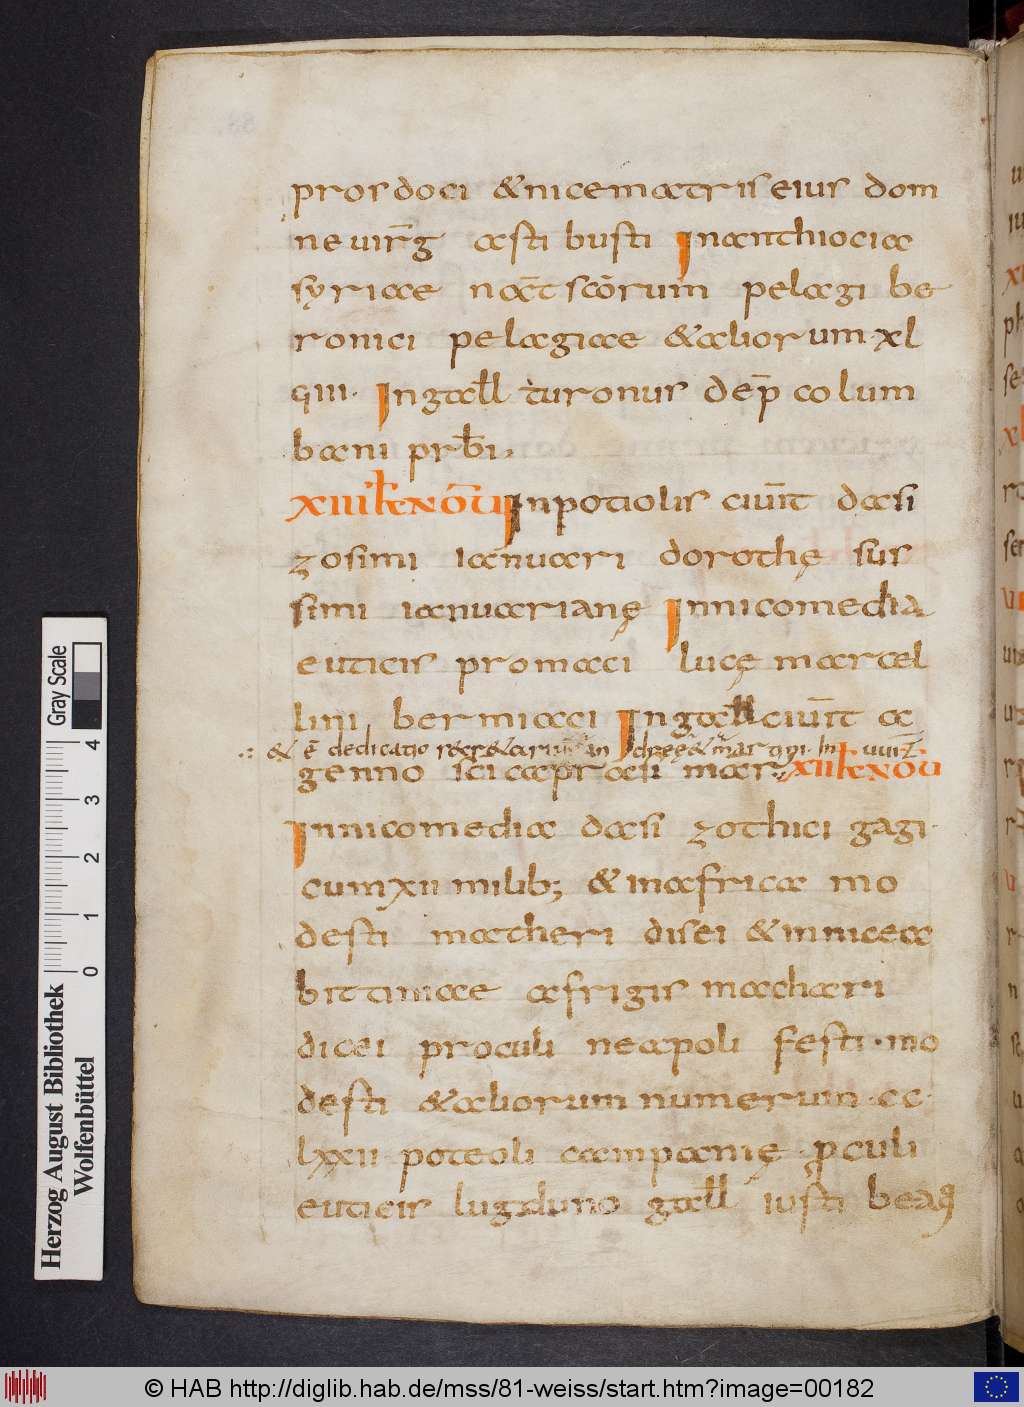 prosdoci &nicematris eius dom
ne uirg̅ asti busti In antchiocia
syriae nac̅t sc̅orum pelagi be
ronici pelagiae &aliorum·xl
qiii· In gall̅ turonus dep̅ colum
bani prb̅i.
XIIII kł NOU In potiolis ciuit̅ dasi
zosimi ianuari dorothę sus
simi ianuarianę In nicomedia
euticis promaci lucę marcel
lini bermiaci In gall̅ ciuit̅ a
.: & ē dedicatio
genno sci caprasii mar XIII kł NOU
In nicomedia dasi zothici gagi
cum xii milib; & in africa mo
desti matheri disei & in nicea
bittiniae afrigis machari
dicei proculi neapoli festi·mo
desti &aliorum numerum·cc·
lxxii poteoli campanię ꝓculi
euticis lugduno gall̅ iusti beaq
Herzog August Bibliothek
Wolfenbüttel
0 1 2 3 4
Gray Scale
© HAB http://diglib.hab.de/mss/81-weiss/start.htm?image=00182